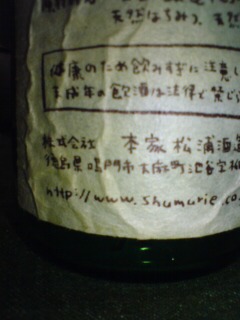 天然はちみつ、天然
健康のため飲みすぎに注意し
未成年の飲酒は法律で禁じ
株式会社 本家松浦酒造
徳島県鳴門市大麻町池谷字柳
http://www.shumurie.co